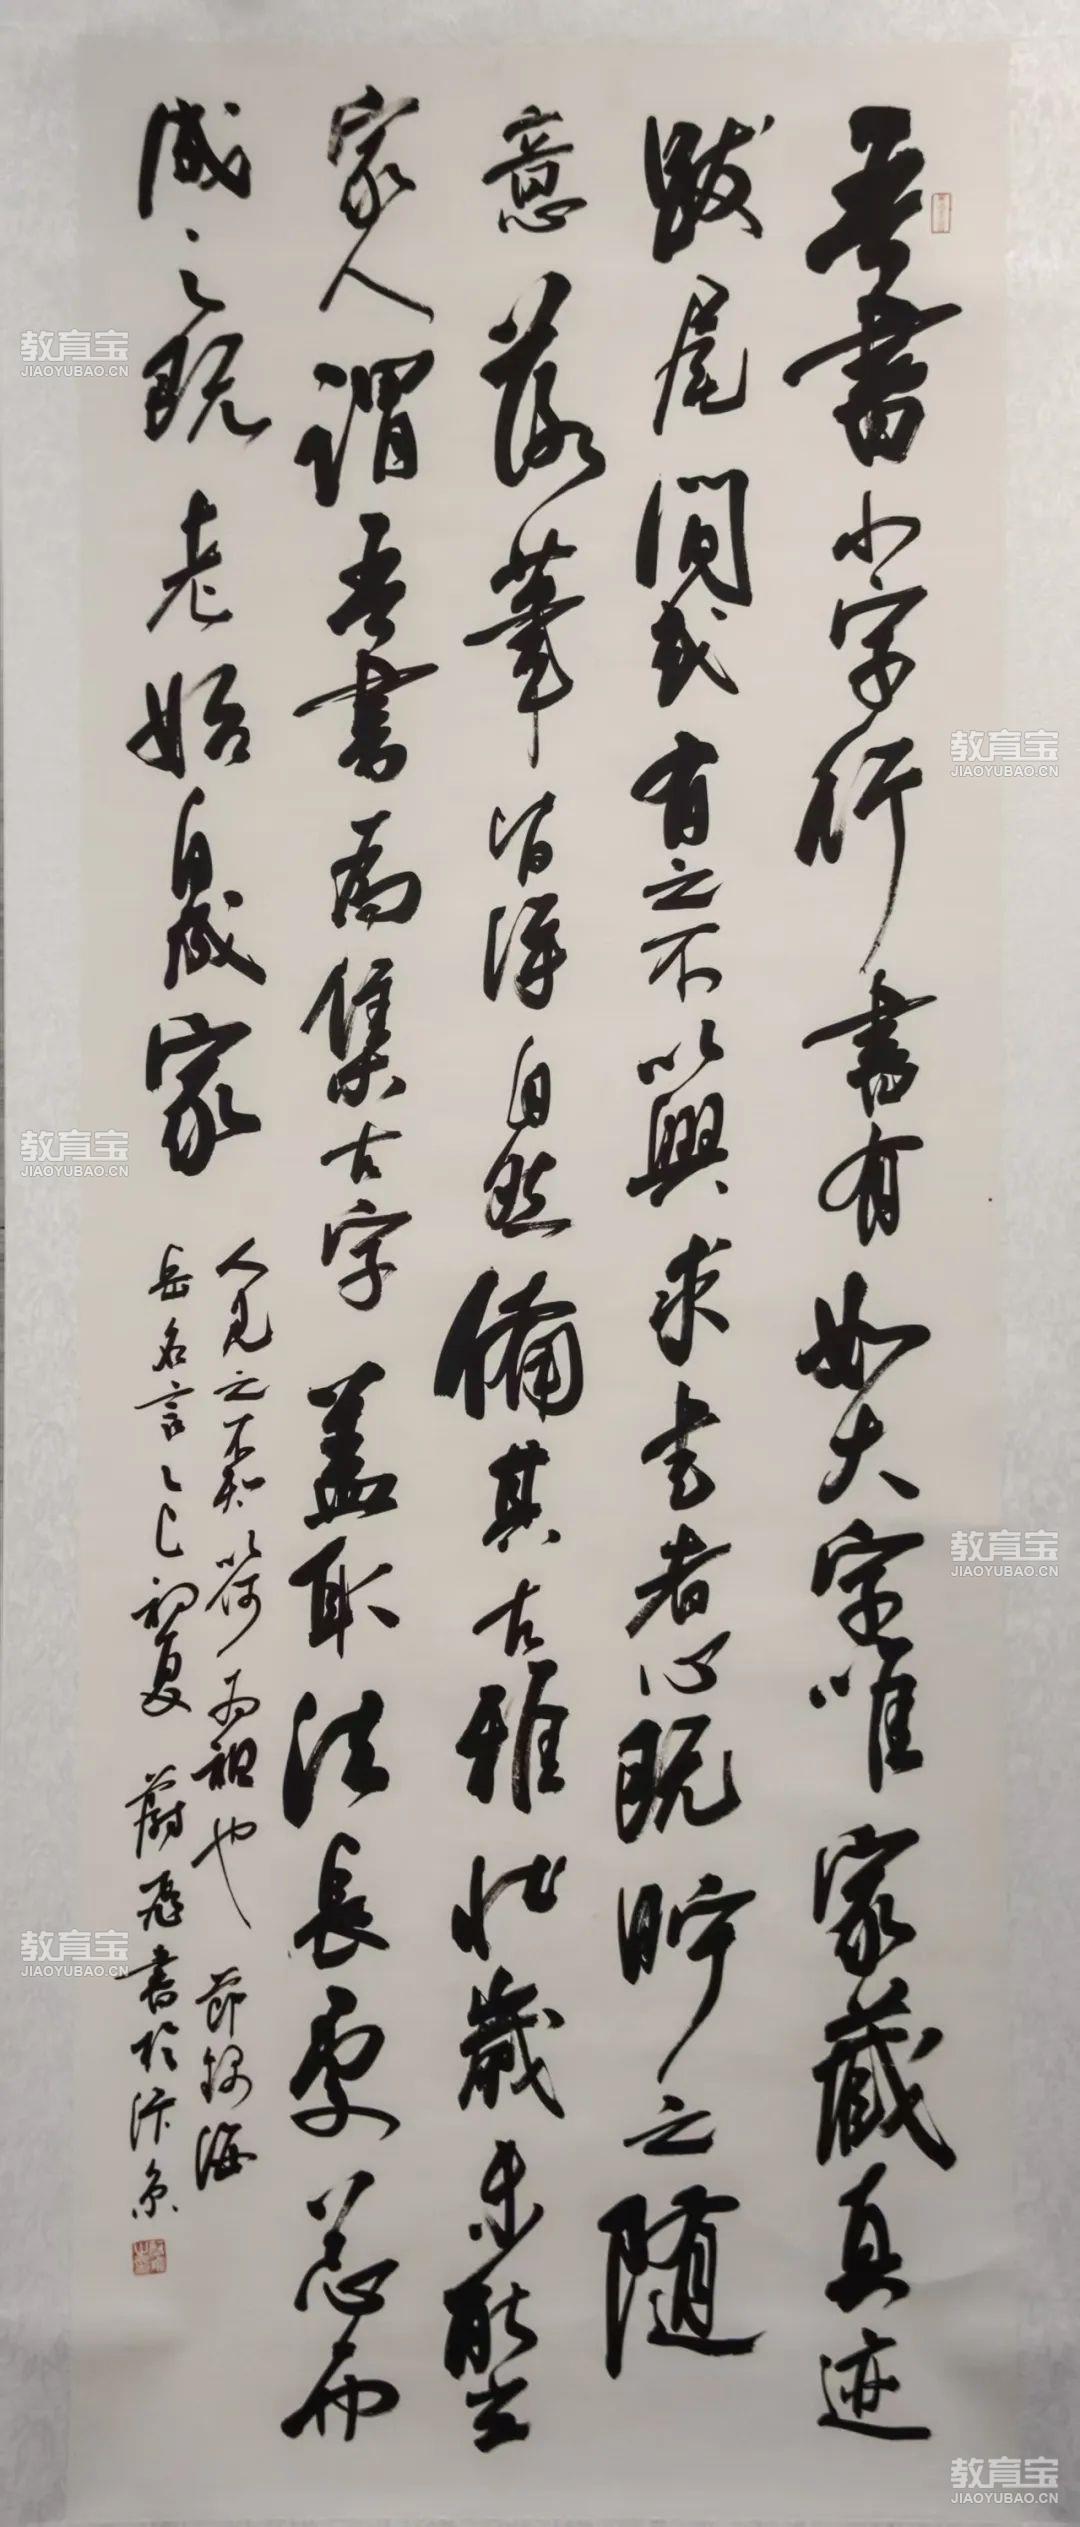 吾書小字行書有如大字唯家藏真迹
跋尾間或有之不以與求书者心既貯之随
意落筆皆得自然備其古雅壮歲未能立
家人謂吾書為集古字盖取诸長處总而
成之既老始自成家
人見之不知以何為祖也 節録海
岳名言乙巳初夏 蔚書於汴京
教育宝
JIAOYUBAO.CN
教育宝
JIAOYUBAO.CN
教育宝
JIAOYUBAO.CN
教育宝
JIAOYUBAO.CN
教育宝
JIAOYUBAO.CN
教育宝
JIAOYUBAO.CN